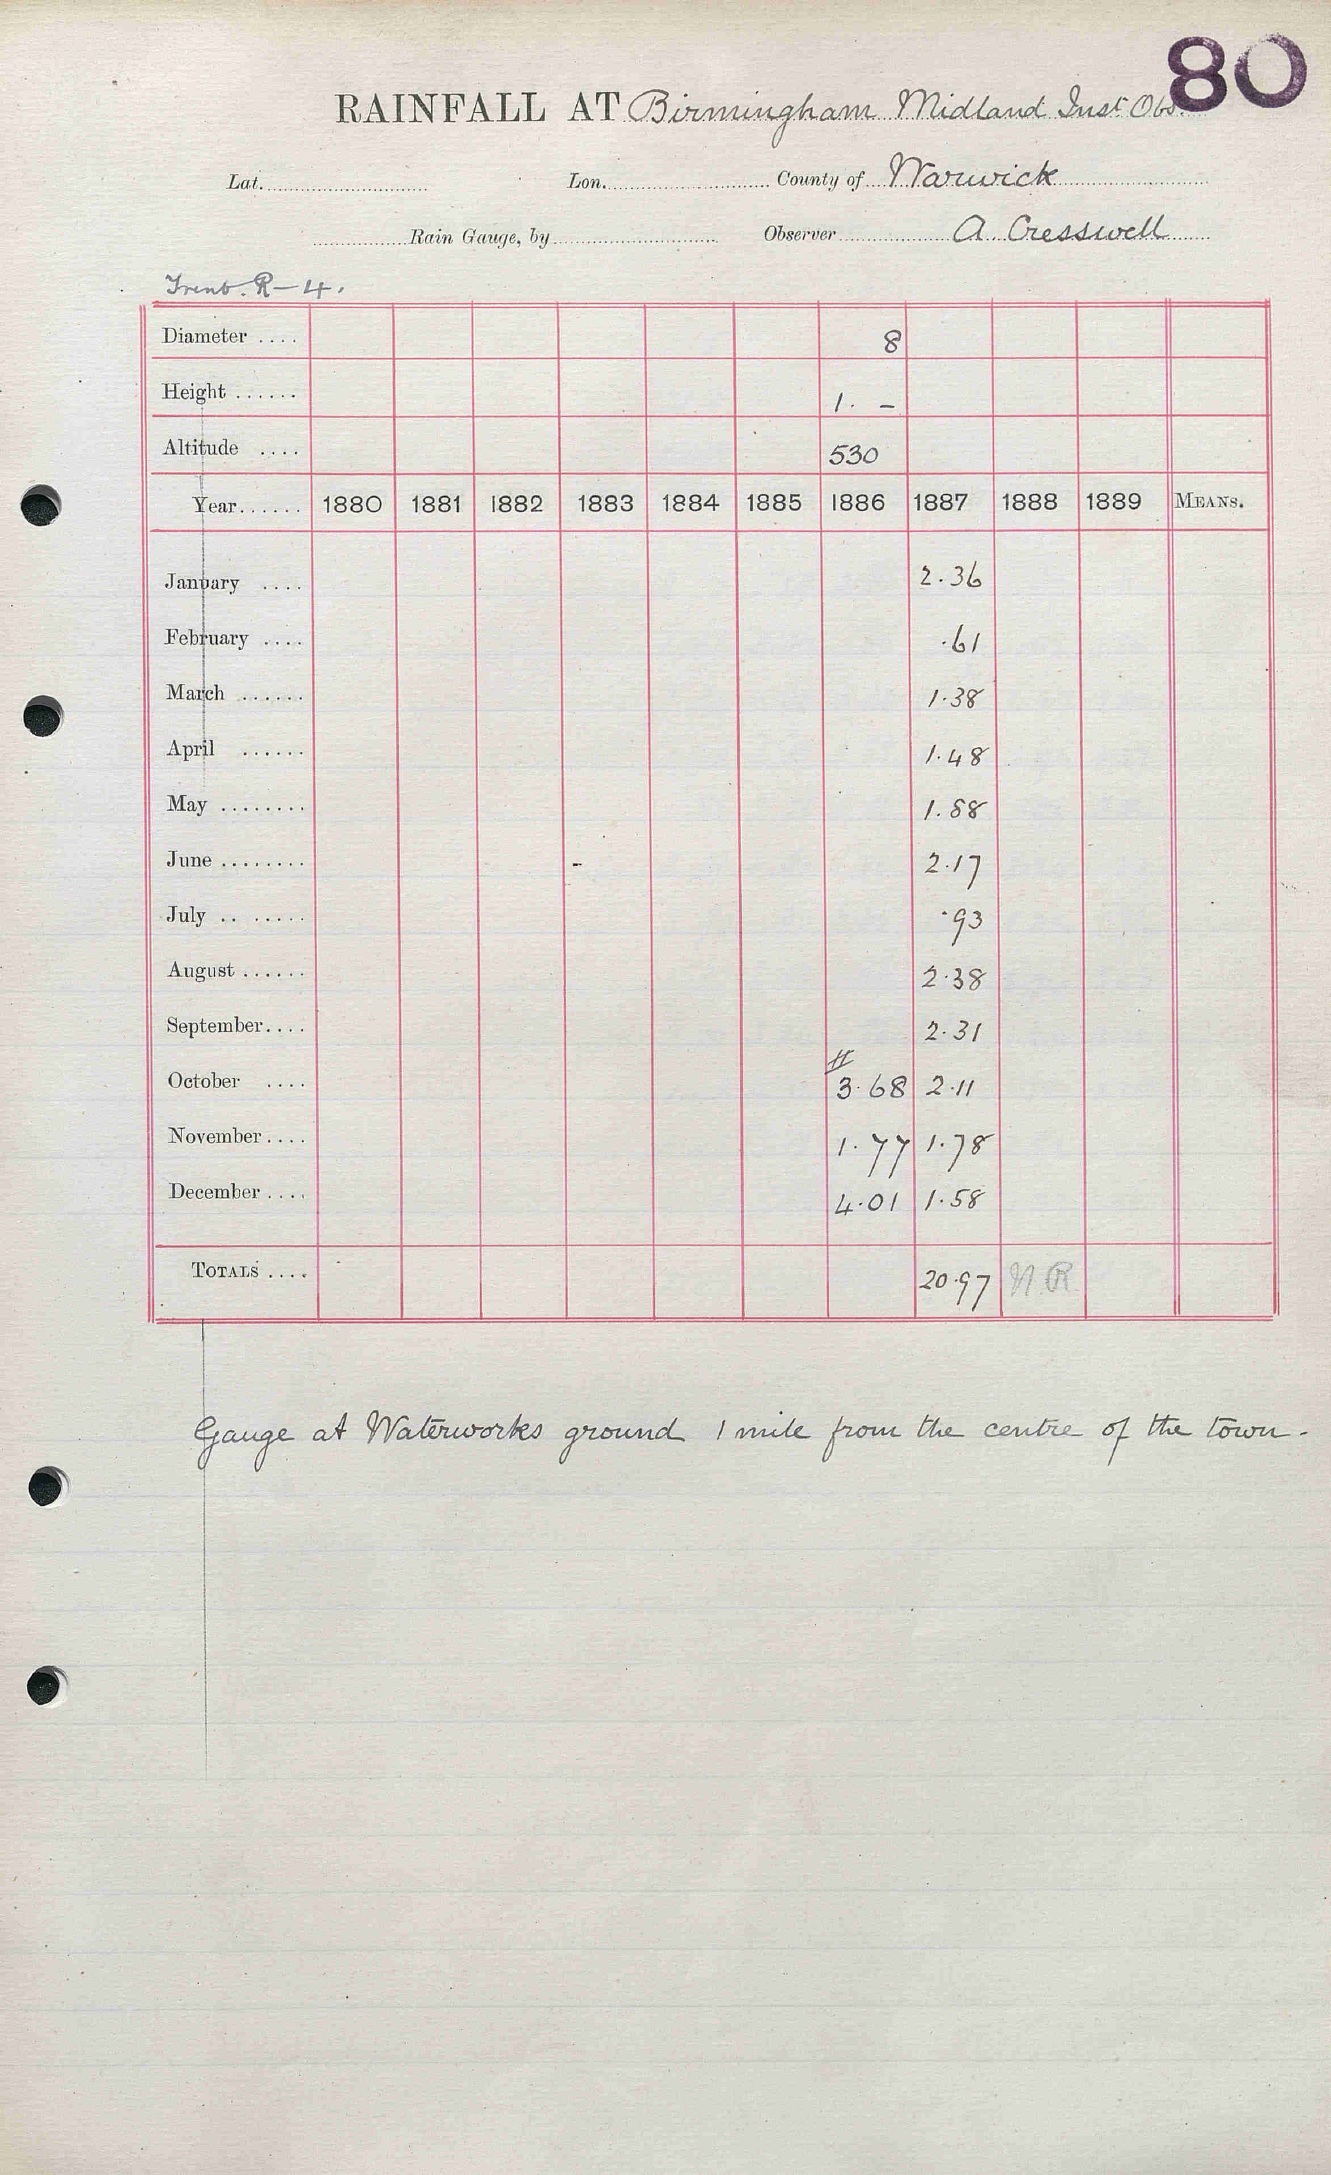 80
RAINFALL AT Birmingham Midland Inst Obs.
Lat. Lon. County of Warwick
Rain Gauge, by Observer A. Cresswell
Trent. R - 4.
Diameter .... 8
Height ...... 1. –
Altitude .... 530
Year...... 1880 1881 1882 1883 1884 1885 1886 1887 1888 1889 MEANS.
January .... 2.36
February .... .61
March ...... 1.38
April ...... 1.48
May ........ 1.88
June ........ 2.17
July .. ...... .93
August ...... 2.38
September.... 2.31
October .... 3.68 2.11
November.... 1.77 1.78
December.... 4.01 1.58
TOTALS .... 20.97 N.R.
Gauge at Waterworks ground 1 mile from the centre of the town.